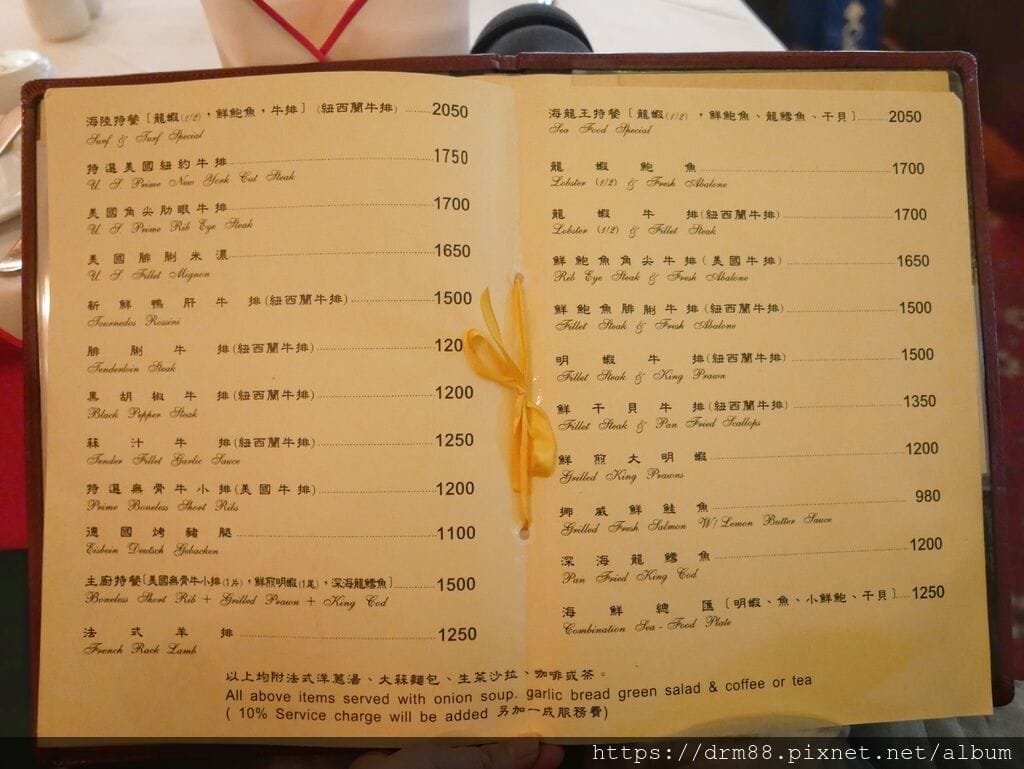 海陸特餐〔龍蝦(1/2)，鮮鮑魚，牛排〕(紐西蘭牛排) 2050
Surf & Turf Special
特選美國紐約牛排 1750
U. S. Prime New York Cut Steak
美國角尖肋眼牛排 1700
U. S. Prime Rib Eye Steak
美國腓脷米濃 1650
U. S. Fillet Mignon
新鮮鴨肝牛排(紐西蘭牛排) 1500
Tournedos Rossini
腓脷牛排(紐西蘭牛排) 120
Tenderloin Steak
黑胡椒牛排(紐西蘭牛排) 1200
Black Pepper Steak
蒜汁牛排(紐西蘭牛排) 1250
Tender Fillet Garlic Sauce
特選無骨牛小排(美國牛排) 1200
Prime Boneless Short Ribs
德國烤豬腿 1100
Eisbein Deutsch Gebacken
主廚特餐〔美國無骨牛小排(1片)，鮮煎明蝦(1尾)，深海龍鱈魚〕 1500
Boneless Short Rib + Grilled Prawn + King Cod
法式羊排 1250
French Rack Lamb
海龍王特餐〔龍蝦(1/2)，鮮鮑魚、龍鱈魚、干貝〕 2050
Sea Food Special
龍蝦鮑魚 1700
Lobster (1/2) & Fresh Abalone
龍蝦牛排(紐西蘭牛排) 1700
Lobster (1/2) & Fillet Steak
鮮鮑魚角尖牛排(美國牛排) 1650
Rib Eye Steak & Fresh Abalone
鮮鮑魚腓脷牛排(紐西蘭牛排) 1500
Fillet Steak & Fresh Abalone
明蝦牛排(紐西蘭牛排) 1500
Fillet Steak & King Prawn
鮮干貝牛排(紐西蘭牛排) 1350
Fillet Steak & Pan Fried Scallops
鮮煎大明蝦 1200
Grilled King Prawns
挪威鮮鮭魚 980
Grilled Fresh Salmon W/Lemon Butter Sauce
深海龍鱈魚 1200
Pan Fried King Cod
海鮮總匯〔明蝦、魚、小鮮鮑、干貝〕 1250
Combination Sea-Food Plate
以上均附法式洋蔥湯、大蒜麵包、生菜沙拉、咖啡或茶。
All above items served with onion soup. garlic bread green salad & coffee or tea
( 10% Service charge will be added 另加一成服務費)
https://drm88.pixnet.net/album